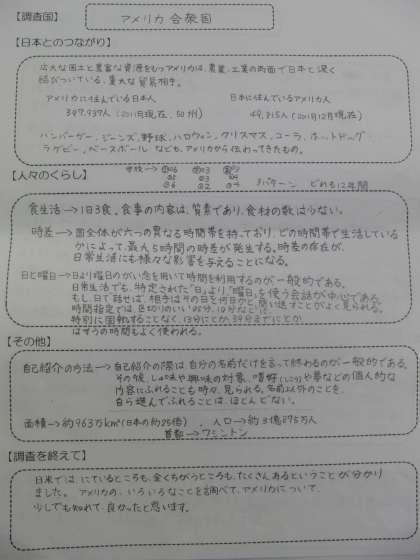 【調査国】 アメリカ合衆国
【日本とのつながり】
広大な国土と豊富な資源をもつアメリカは、農業、工業の両面で日本と深く
結びついている、重大な貿易相手。
アメリカに住んでいる日本人 日本に住んでいるアメリカ人
397,937人(2011現在、50州) 49,815人(2011年12月現在)
ハンバーガー、ジーンズ、野球、ハロウィン、クリスマス、コーラ、ホットドッグ
ラグビー、ベースボール なども、アメリカから伝わってきたもの。
【人々のくらし】
3パターン どれも12年間
食生活→1日3食。食事の内容は、質素であり、食材の数は少ない。
時差→国全体が六つの異なる時間帯を持っており、どの時間帯で生活している
かによって、最大5時間の時差が発生する。時差の存在が、
日常生活にも様々な影響を与えることになる。
日と曜日→日より曜日のがい念を用いて時間を利用するのが一般的である。
日常生活でも、特定された「日」より、「曜日」を使う会話が中心である。
もし、日で話せば、相手はその日を何曜日かと問い返すことがよく見られる。
時間指定では、区切りのいい
特別に固執することなく、13分にとか、39分までにとか
はすうの時間もよく使われる。
【その他】
自己紹介の方法→自己紹介の際は、自分の名前だけを言って終わるのが一般的である。
その後、しゅ味や興味の対象、嗜好(しこう)や夢などの個人的な
内容にふれることも時々、見られる。名前以外のことを、
自ら進んでふれることは、ほとんどない。
面積→約963万km²(日本の約25倍) 人口→約3億875万人
首都→ワシントン
【調査を終えて】
日米では、にているところも、全くちがうところも、たくさんあるということが分かり
ました。アメリカの、いろいろなことを調べて、アメリカについて、
少しでも知れて、良かったと思います。